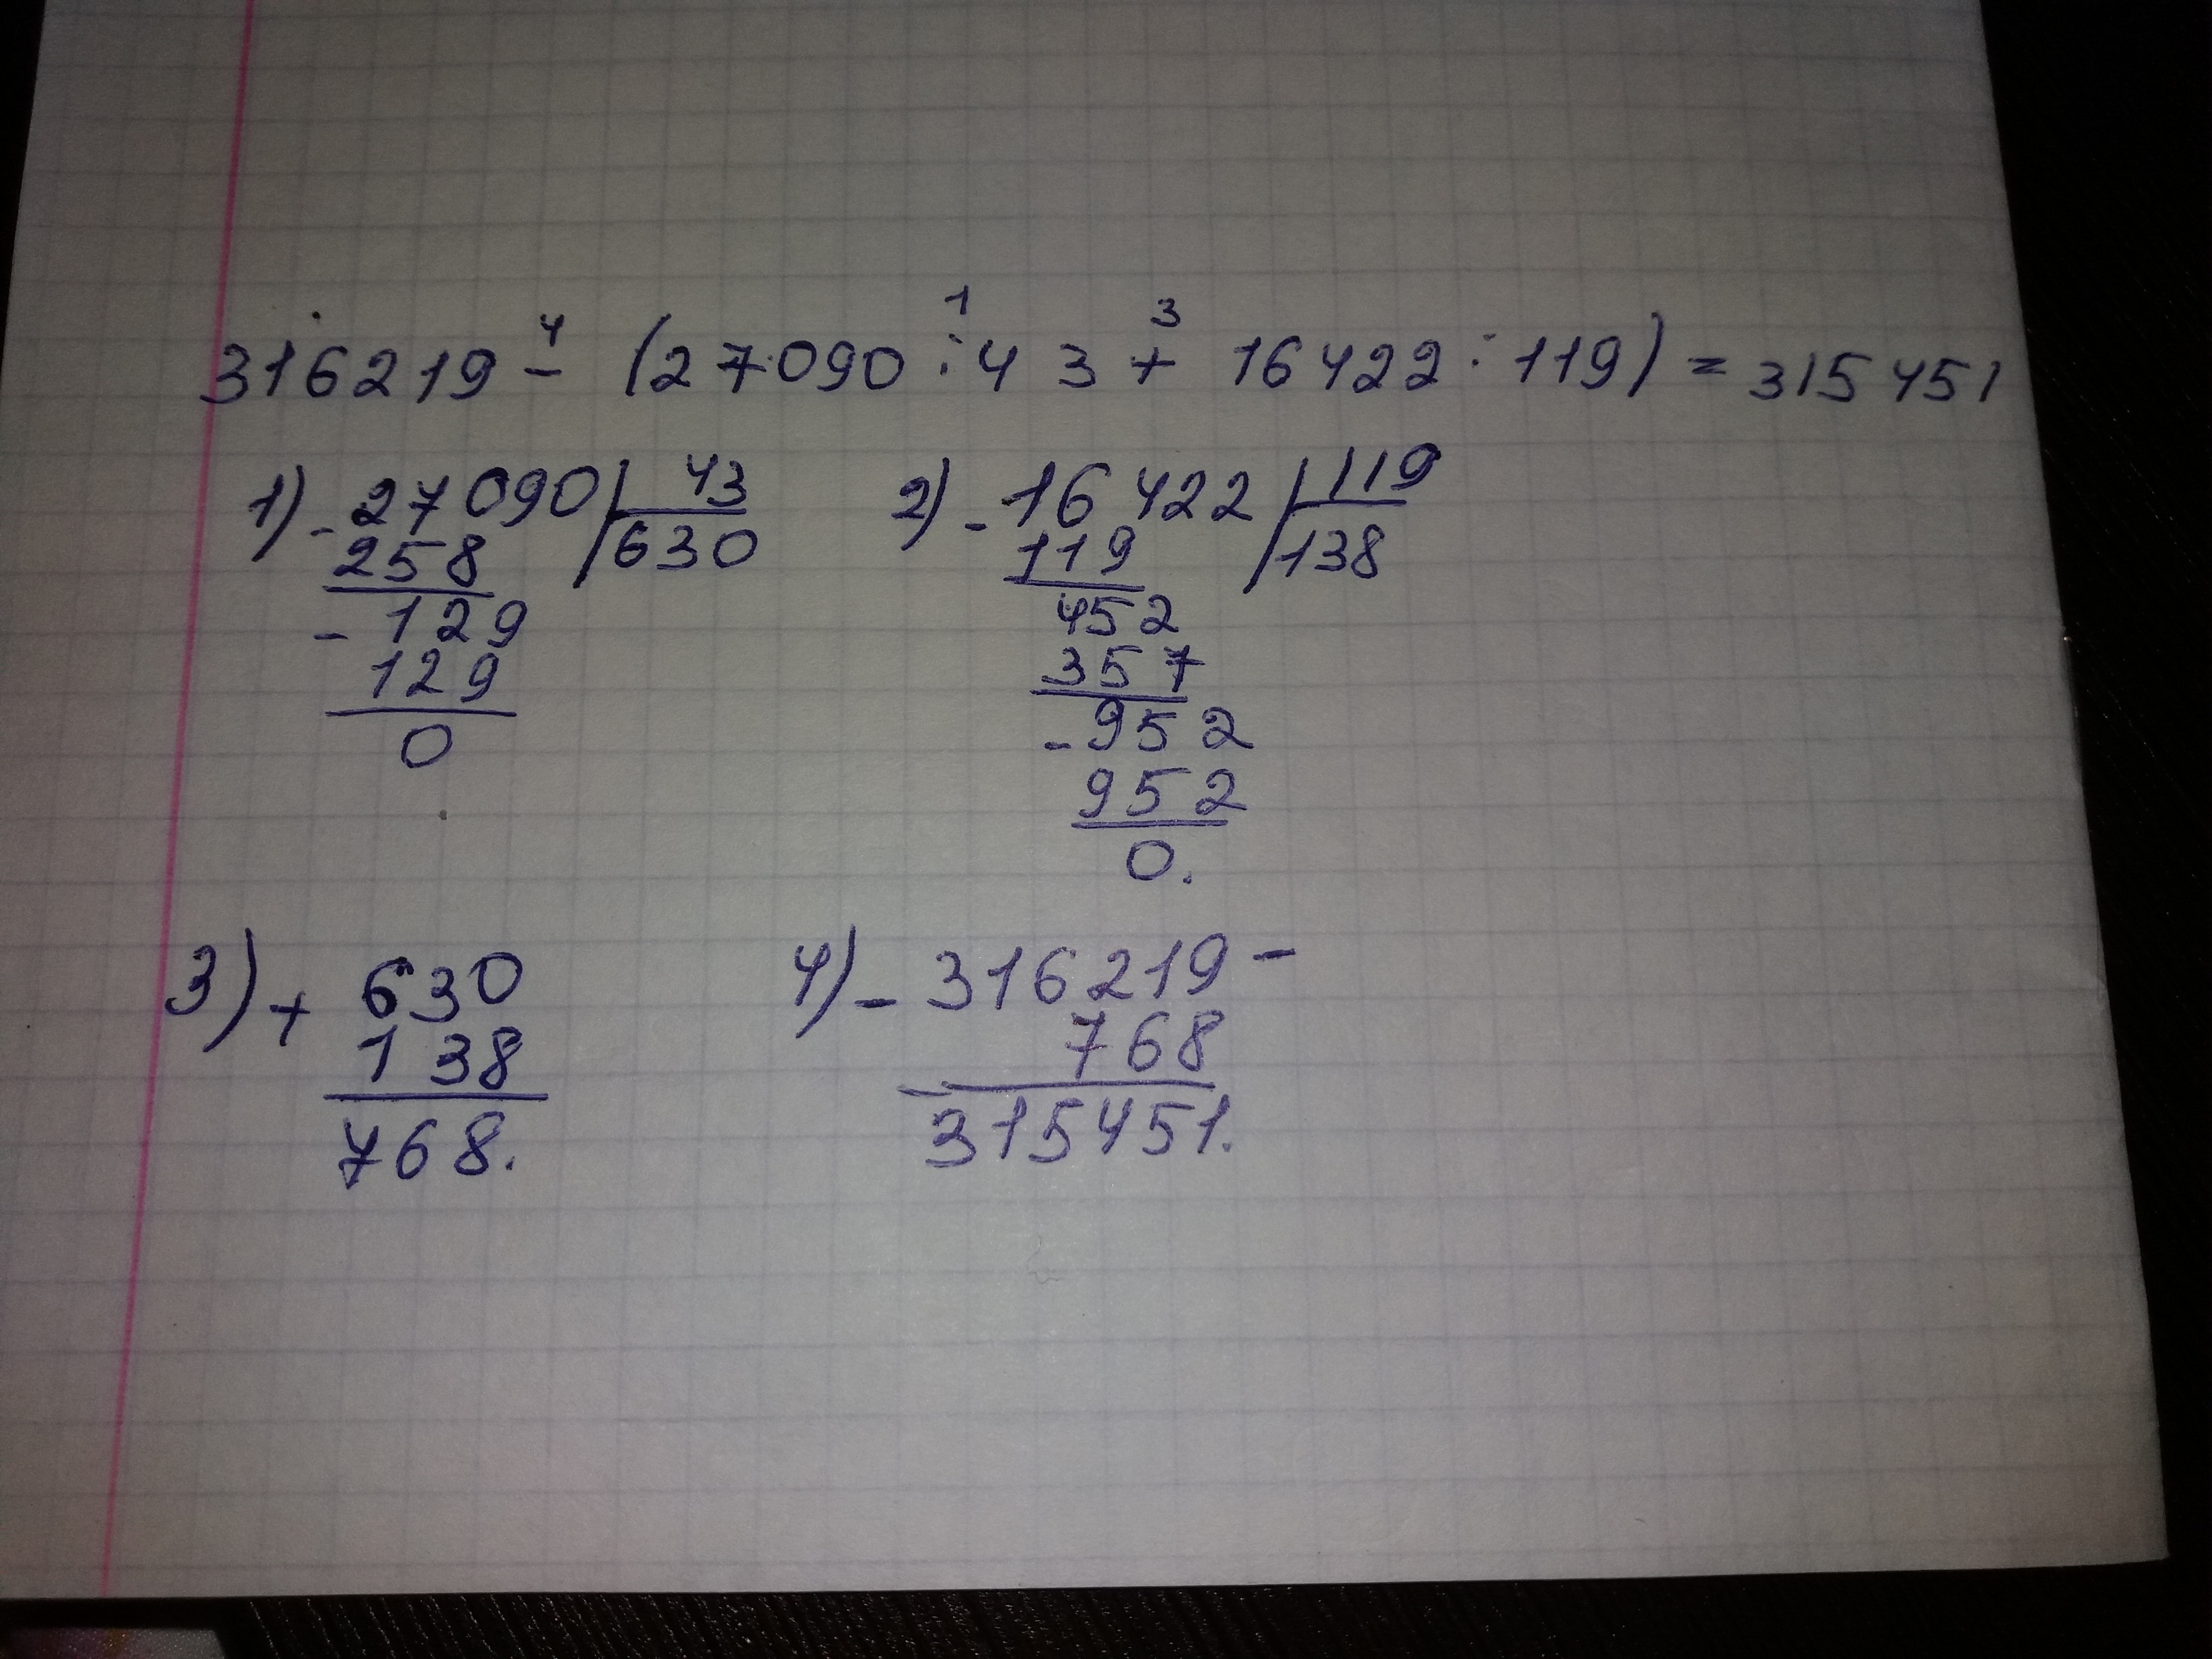 4 1 3
316219 - (27090 : 43 + 16422 : 119) = 315451
1) - 27090 | 43
258 | 630
- 129
129
0
2) - 16422 | 119
119 | 138
452
357
- 952
952
0.
3) + 630
138
768.
4) - 316219 -
768
315451.